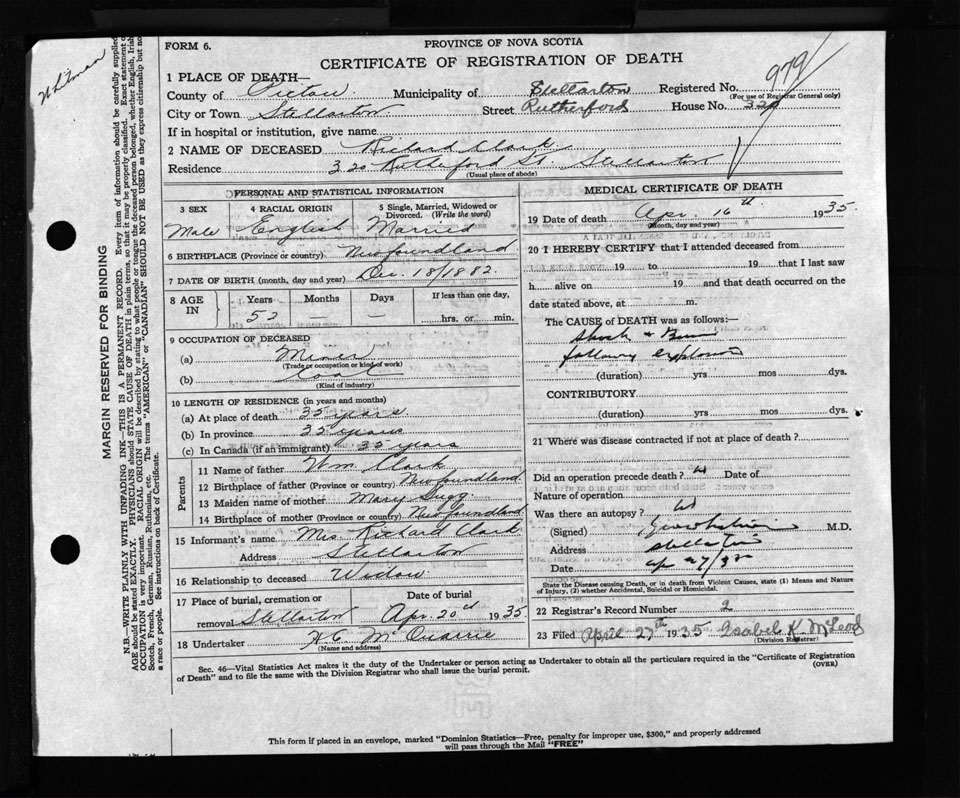 Whitman
MARGIN RESERVED FOR BINDING
N.B.—WRITE PLAINLY WITH UNFADING INK—THIS IS A PERMANENT RECORD. Every item of information should be carefully supplied.
AGE should be stated EXACTLY. PHYSICIANS should STATE CAUSE OF DEATH in plain terms, so that it may be properly classified. Exact statement of
OCCUPATION is very important. RACIAL ORIGIN will be described by stating to what people or tongue the deceased person belonged, whether English, Irish,
Scotch, French, German, Russian, Ruthenian, etc. The terms "AMERICAN" or "CANADIAN" SHOULD NOT BE USED as they express citizenship but not
a race or people. See instructions on back of Certificate.
FORM 6.
PROVINCE OF NOVA SCOTIA
CERTIFICATE OF REGISTRATION OF DEATH
1 PLACE OF DEATH—
County of Pictou Municipality of Stellarton Registered No. 979
(For use of Registrar General only)
City or Town Stellarton Street Rutherford House No. 320
If in hospital or institution, give name
2 NAME OF DECEASED Richard Clark
Residence 320 Rutherford St. Stellarton
(Usual place of abode)
PERSONAL AND STATISTICAL INFORMATION
3 SEX 4 RACIAL ORIGIN 5 Single, Married, Widowed or Divorced. (Write the word)
Male English Married
6 BIRTHPLACE (Province or country) Newfoundland
7 DATE OF BIRTH (month, day and year) Dec. 18/1882
8 AGE IN Years Months Days If less than one day,
52 — — hrs. or min.
9 OCCUPATION OF DECEASED
(a) Miner
(Trade or occupation or kind of work)
(b) Coal
(Kind of industry)
10 LENGTH OF RESIDENCE (in years and months)
(a) At place of death 35 years
(b) In province 35 years
(c) In Canada (if an immigrant) 35 years
Parents
11 Name of father Wm. Clark
12 Birthplace of father (Province or country) Newfoundland
13 Maiden name of mother Mary Sugg
14 Birthplace of mother (Province or country) Newfoundland
15 Informant's name Mrs. Richard Clark
Address Stellarton
16 Relationship to deceased Widow
17 Place of burial, cremation or removal Stellarton Date of burial Apr. 20th 1935
18 Undertaker H C McQuarrie
(Name and address)
MEDICAL CERTIFICATE OF DEATH
19 Date of death Apr. 16th 1935.
(Month, day and year)
20 I HEREBY CERTIFY that I attended deceased from
19 to 19 that I last saw
h alive on 19 and that death occurred on the
date stated above, at m.
The CAUSE of DEATH was as follows:—
Shock & Burns
following explosion
(duration) yrs mos dys.
CONTRIBUTORY
(duration) yrs mos dys.
21 Where was disease contracted if not at place of death?
Did an operation precede death? Date of
Nature of operation
Was there an autopsy?
(Signed) M.D.
Address Stellarton
Date Ap 27/35
State the Disease causing Death, or in death from Violent Causes, state (1) Means and Nature
of Injury, (2) whether Accidental, Suicidal or Homicidal.
22 Registrar's Record Number 2
23 Filed April 27th 1935 Isabel K. McLeod
(Division Registrar)
Sec. 46—Vital Statistics Act makes it the duty of the Undertaker or person acting as Undertaker to obtain all the particulars required in the "Certificate of Registration
of Death" and to file the same with the Division Registrar who shall issue the burial permit.
(OVER)
This form if placed in an envelope, marked "Dominion Statistics—Free, penalty for improper use, $300," and properly addressed
will pass through the Mail "FREE"